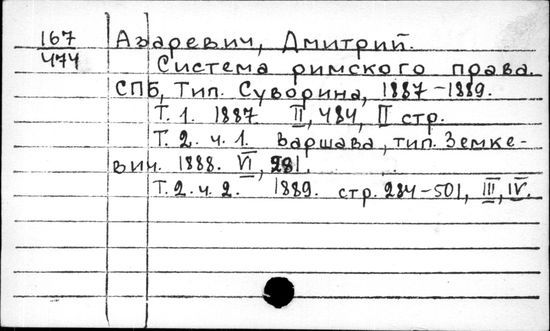 167
474
Азаревич, Дмитрий.
Система римского права.
СПБ, Тип. Суворина, 1887-1889.
Т. 1. 1887 II, 484, II стр.
Т. 2. ч. 1. Варшава, тип. Земке-
вич. 1888. VI, 281.
Т. 2. ч. 2. 1889. стр. 284-501, III, IV.